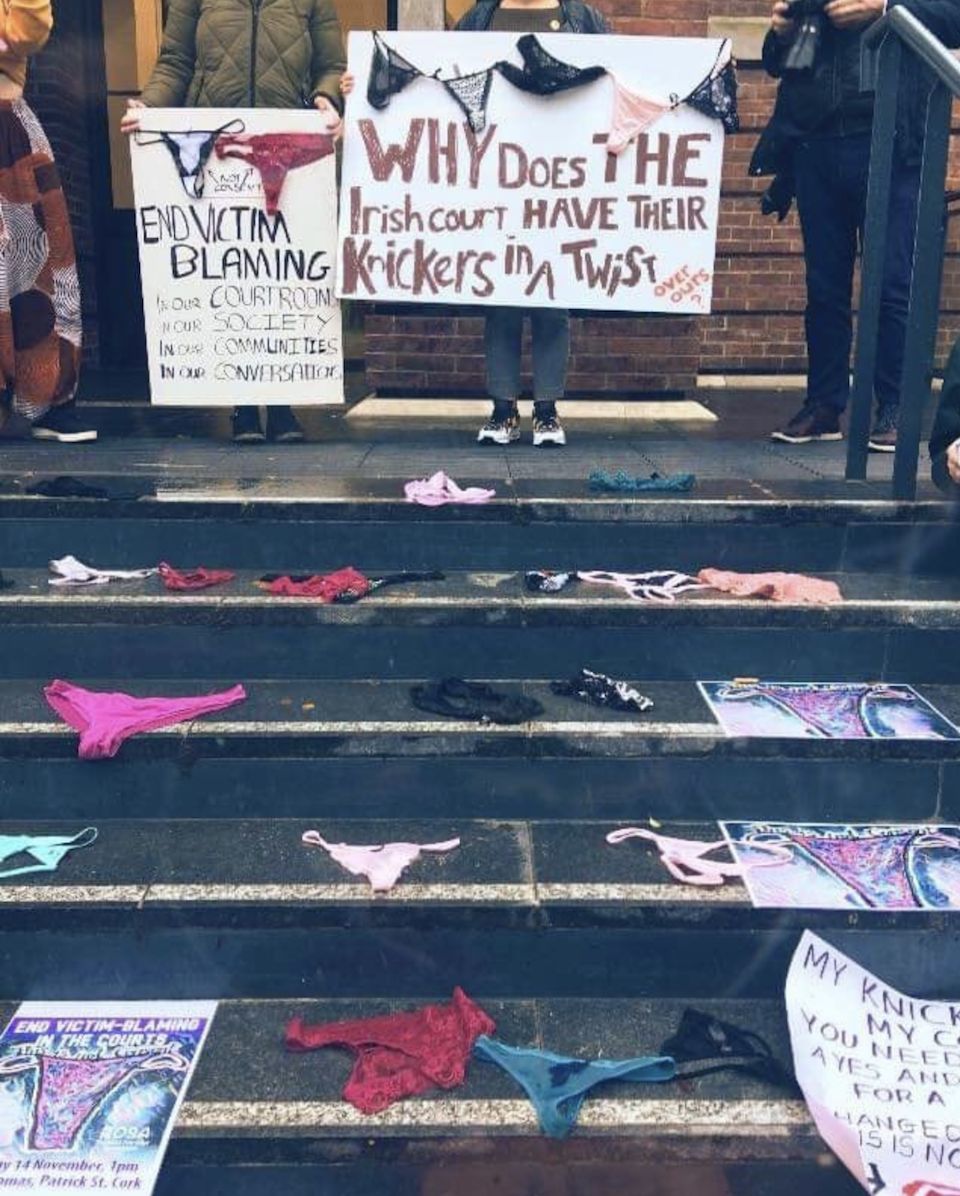 NOT
CONSENT
END VICTIM
BLAMING
IN OUR COURTROOMS
IN OUR SOCIETY
IN OUR COMMUNITIES
IN OUR CONVERSATIONS
WHY DOES THE
Irish court HAVE THEIR
Knickers in A TWIST
OVER
OURS
?
END VICTIM-BLAMING
IN THE COURTS
ROSA
14 November, 1pm
Patrick St. Cork
MY KNICK
MY CO
YOU NEED
A YES AND
FOR A
HANGED
IS IS NO